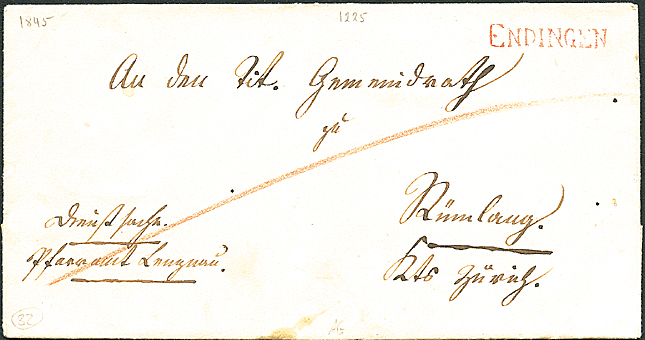 1845
1225
ENDINGEN
An den Tit. Gemeindrath
zu
Rümlang.
Kts Zürich.
Dienstsache.
Pfarramt Lengnau.
32